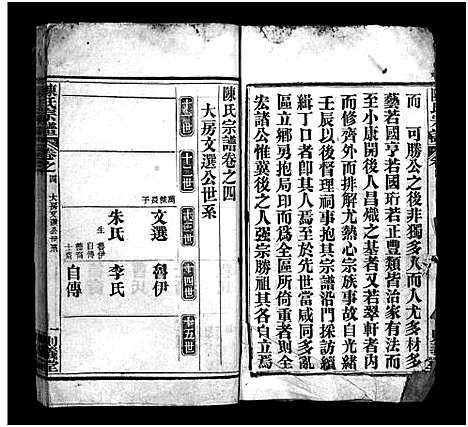 而　可勝公之後非獨多才而尤多材多
藝若國亨若國珩若正豐類皆治家有法
至小康開後人昌熾之基又若翠軒者內
而修齊外而排解尤熱心宗族事故自光
壬辰以後督理祠事抱其宗譜沿門採訪續
緝丁口者即其人焉至於光世當明初
區立鄉勇抱局印而為全區所倚重者則
宏諸公惟冀後之人强宗勝祖其各自立焉
陳氏宗譜卷之四
大房文選公世系
十一世
十二世
十三世
十四世
十五世
萬祿長子
文選
朱氏
生
魯伊
魯伊
李氏
自傳
陳氏宗譜
卷之四
大房文選公世系
一
義堂